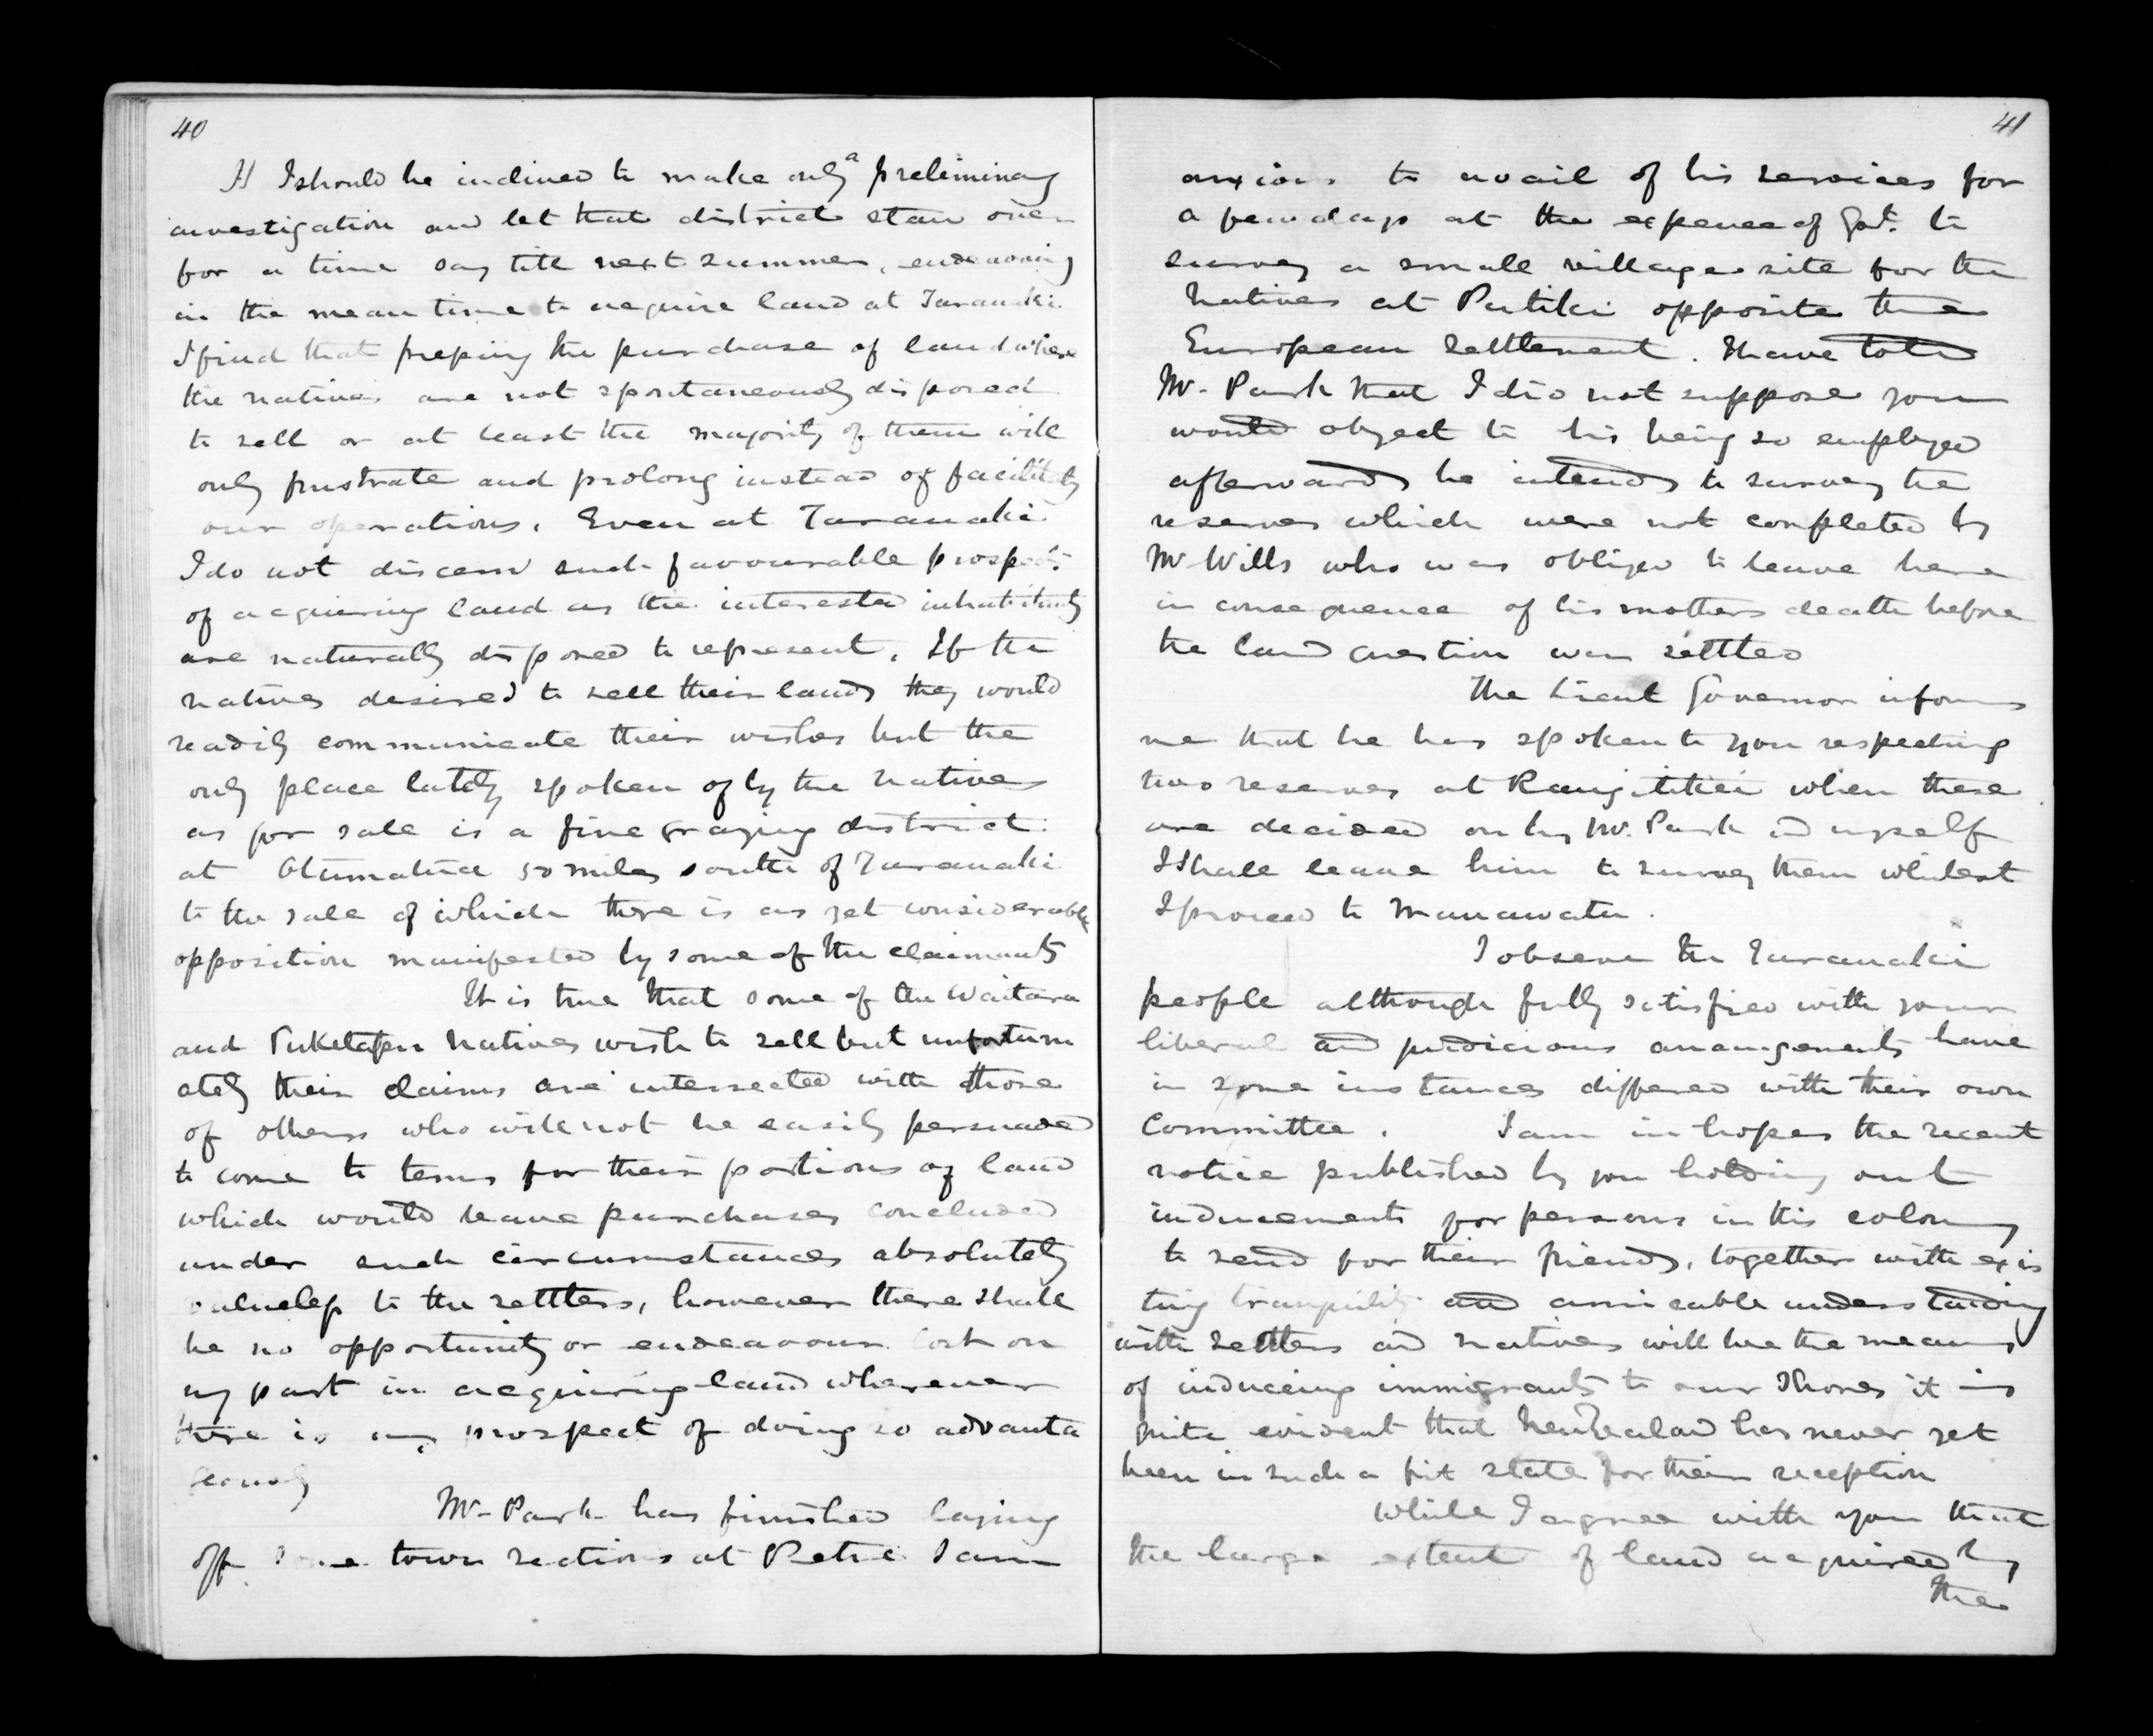 40
I should be inclined to make only a preliminary
investigation and let that district stand over
for a time say till next summer, endeavouring
in the mean time to acquire land at Taranaki.
I find that pressing the purchase of land where
the natives are not spontaneously disposed
to sell or at least the majority of them will
only frustrate and prolong instead of facilitate
our operations. Even at Taranaki
I do not discern such favourable prospects
of acquiring land as the interested inhabitants
are naturally disposed to represent. If the
natives desired to sell their lands they would
readily communicate their wishes but the
only place lately spoken of by the natives
as for sale is a fine grazing district
at Otumatua 50 miles south of Taranaki
to the sale of which there is as yet considerable
opposition manifested by some of the claimants
It is true that some of the Waitara
and Puketapu natives wish to sell but unfortun
ately their claims are intersected with those
of others who will not be easily persuaded
to come to terms for their portions of land
which would leave purchases concluded
under such circumstances absolutely
valueless to the settlers, however there shall
be no opportunity or endeavour lost on
my part in acquiring land wherever
there is any prospect of doing so advanta
geously
Mr. Park has finished laying
off some town sections at Petre I am
41
anxious to avail of his services for
a few days at the expence of Govt. to
survey a small village site for the
natives at Putiki opposite the
European settlement. I have told
Mr. Park that I did not suppose you
would object to his being so employed
afterwards he intends to survey the
reserves which were not completed by
Mr Wills who was obliged to leave here
in consequence of his mothers death before
the land question was settled
The Lieut Governor informs
me that he has spoken to you respecting
two reserves at Rangitikei when these
are decided on by Mr. Park and myself
I shall leave him to survey them whilst
I proceed to Manawatu.
I observe the Taranaki
people although fully satisfied with your
liberal and judicious arrangements have
in some instances differed with their own
Committee. I am in hopes the recent
notice published by you holding out
inducements for persons in this colony
to send for their friends, together with exis
ting tranquility and amicable understanding
with settlers and natives will be the means
of induceing immigrants to our shores it is
quite evident that New Zealand has never yet
been in such a fit state for their reception
While I agree with you that
the large extent of land acquired by
the